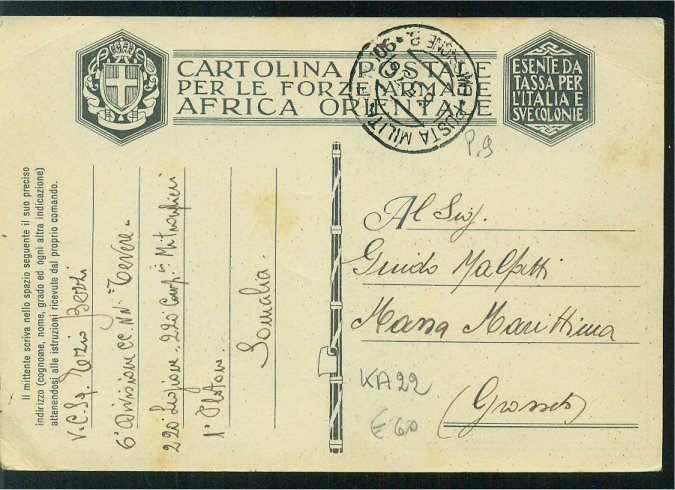 CARTOLINA POSTALE
PER LE FORZE ARMATE
AFRICA ORIENTALE
ESENTE DA
TASSA PER
L'ITALIA E
SVE COLONIE
POSTA MILITARE
P.9
Al Sig.
Guido Malfatti
Massa Marittima
(Grosseto)
KA22
€ 60
Il mittente scriva nello spazio seguente il suo preciso
indirizzo (cognome, nome, grado ed ogni altra indicazione)
attenendosi alle istruzioni ricevute dal proprio comando.
V. C. Sq. Ezio Bezzi
6ª Divisione CC. NN. "Tevere"
220 Legione - 220 Comp. Mitraglieri
1º Plotone
Somalia